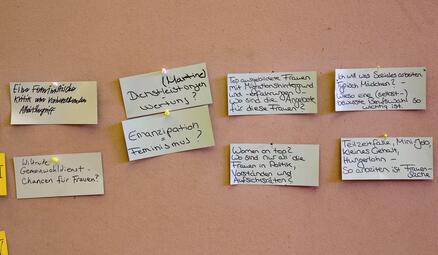 Eine Feministische
Kritik am vorherrschenden
Arbeitsbegriff
(Martina)
Dienstleistungen
Wertung?
Emanzipation
=
Feminismus?
Top ausgebildete Frauen
mit Migrationshintergrund
und -erfahrungen
wo sind die Angebote
für diese Frauen?
Ich will was Soziales arbeiten
Typisch Mädchen? -
wieso eine (selbst-)
bewusste Berufswahl so
wichtig ist.
Würde
Gemeinwohldienst -
Chancen für Frauen?
Women on top?
Wo sind nur all die
Frauen in Politik,
Vorständen und
Aufsichtsräten?
Teilzeitfalle, Mini-Job,
kleines Gehalt,
Hungerlohn -
So arbeiten ist Frauen-
sache